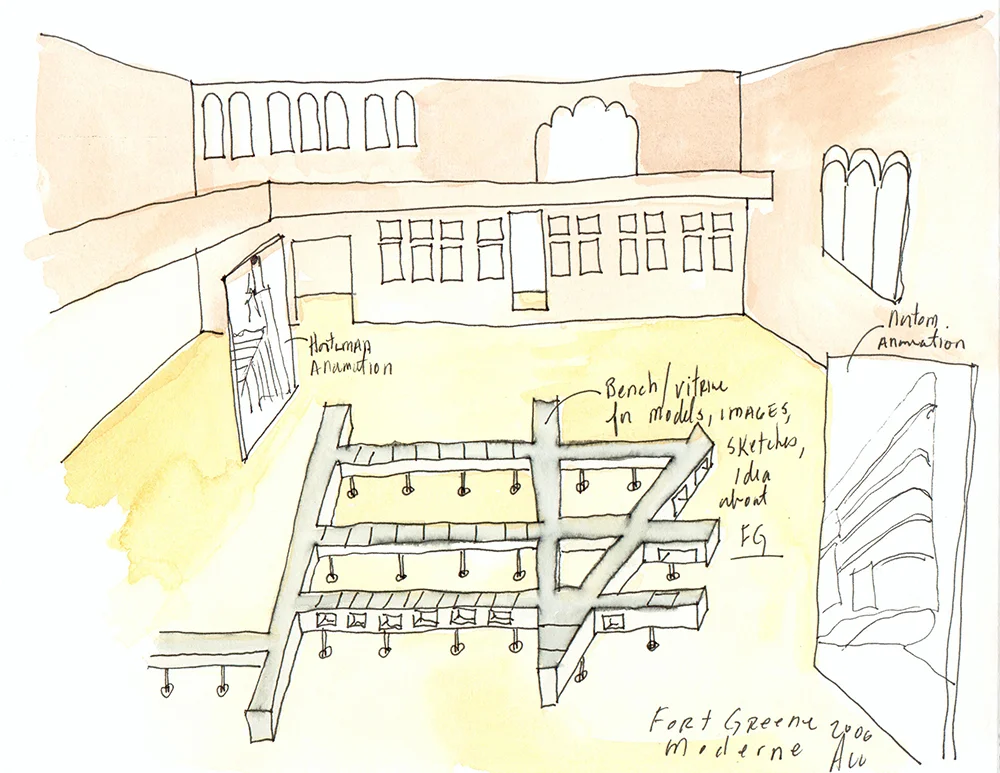 Animation
Animation
Bench/vitrine
for models, IMAGES,
Sketches,
Idea
about
FG
Fort Greene 2006
Moderne